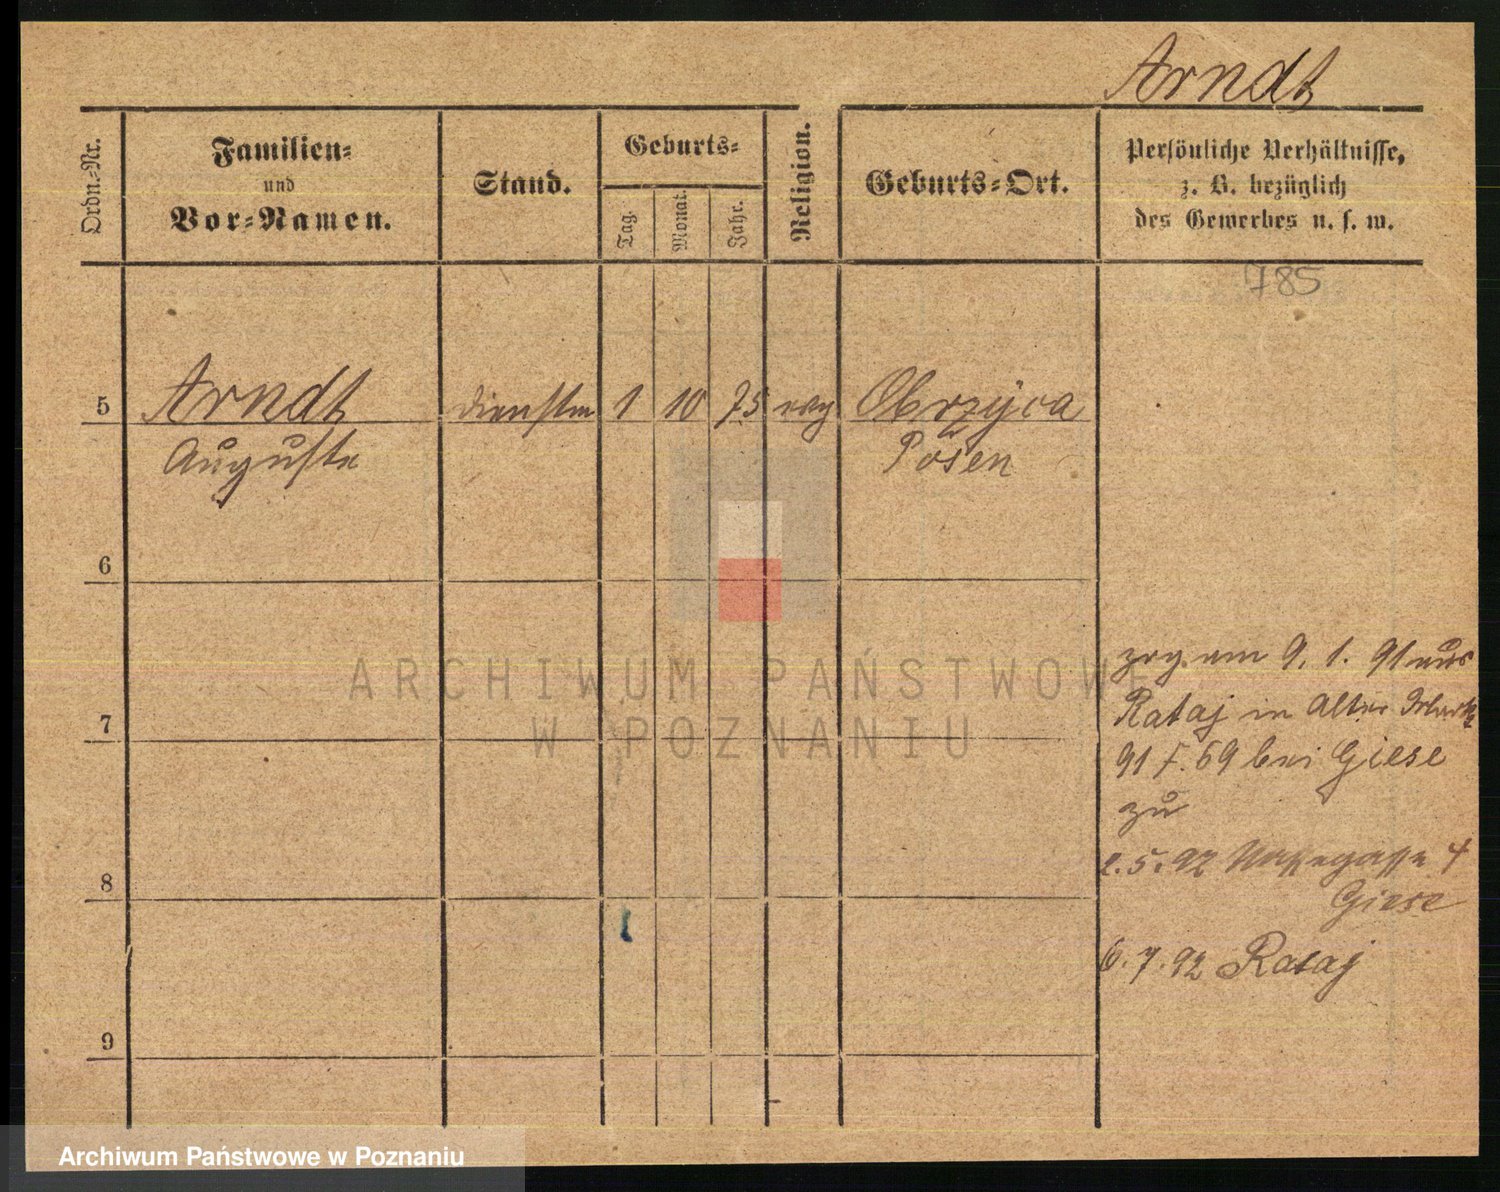 Arndt
Ordn.-Nr.
Familien-
und
Vor-Namen.
Stand.
Geburts-
Tag.
Monat.
Jahr.
Religion.
Geburts-Ort.
Persönliche Verhältnisse,
z. B. bezüglich
des Gewerbes u. s. w.
785
5 Arndt dienstm 1 10 75 evg Obrzyca
Auguste Posen
6
zug. am 9. 1. 91 aus
Rataj in Alter Markt
7
91 f. 69 bei Giese
zu
2.5.92 4
8
Giese
6.7.92 Rataj
9
ARCHIWUM PAŃSTWOWE
W POZNANIU
Archiwum Państwowe w Poznaniu